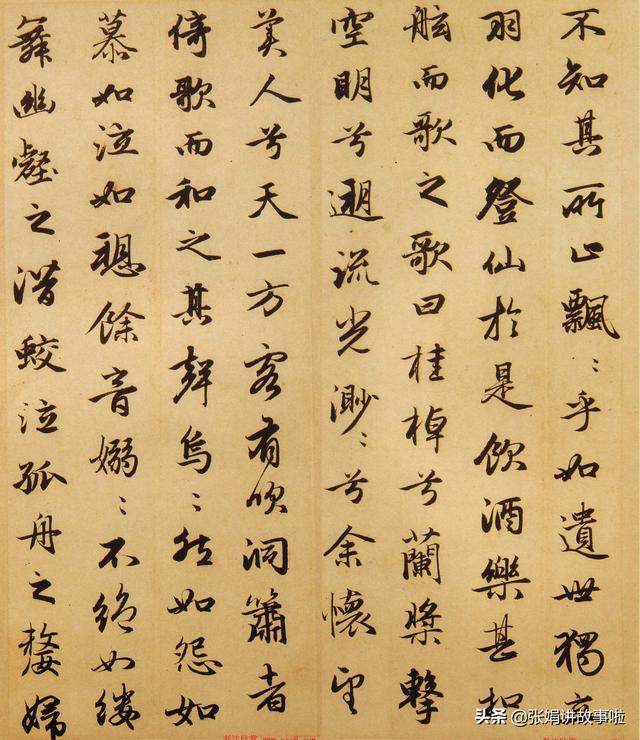 不知其所止飄〻乎如遺世獨立
羽化而登仙於是飲酒樂甚扣
舷而歌之歌曰桂棹兮蘭槳擊
空明兮遡流光渺〻兮余懷望
美人兮天一方客有吹洞簫者
倚歌而和之其聲烏〻然如怨如
慕如泣如愬餘音嫋〻不絕如縷
舞幽壑之潛蛟泣孤舟之嫠婦
头条 @张娟讲故事啦